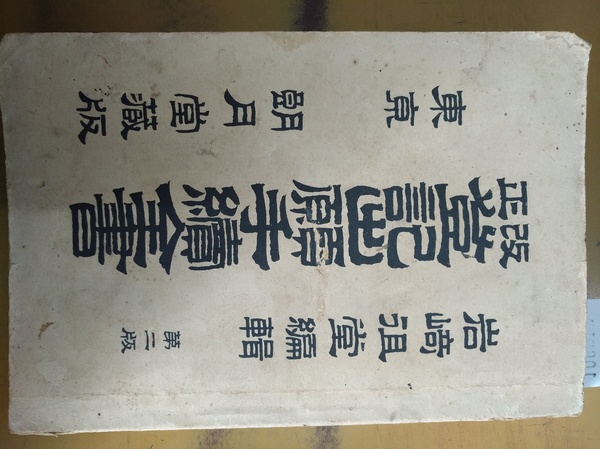 岩﨑徂堂編輯
第二版
改正
登記出願手續全書
東京
朙月堂藏版